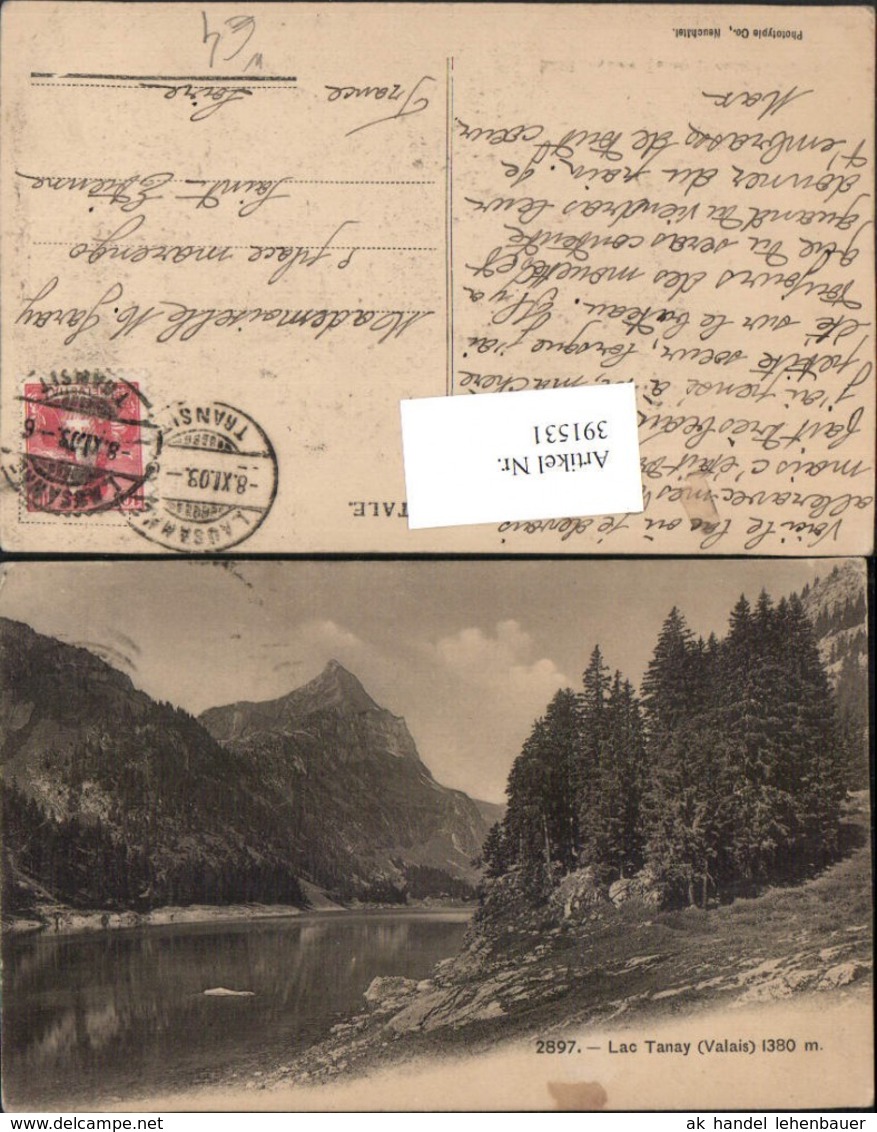 Phototypie Co., Neuchâtel.
TALE.
Voici le lac où je devais
aller avec mes
mais c'était
fait très beau
j'ai pensé à
petite soeur, lorsque j'ai
été sur le bateau. Il y a
toujours des mouettes et
que tu seras contente
quand tu viendras leur
donner du pain. Je
t'embrasse de tout coeur
Max
Mademoiselle M. Garay
place marengo
Saint-Etienne
Loire
France
LAUSANNE
-8.XI.03.-6
TRANSIT
LAUSANNE
-8.XI.03.-
TRANSIT
Artikel Nr.
391531
2897. — Lac Tanay (Valais) 1380 m.
ak handel lehenbauer